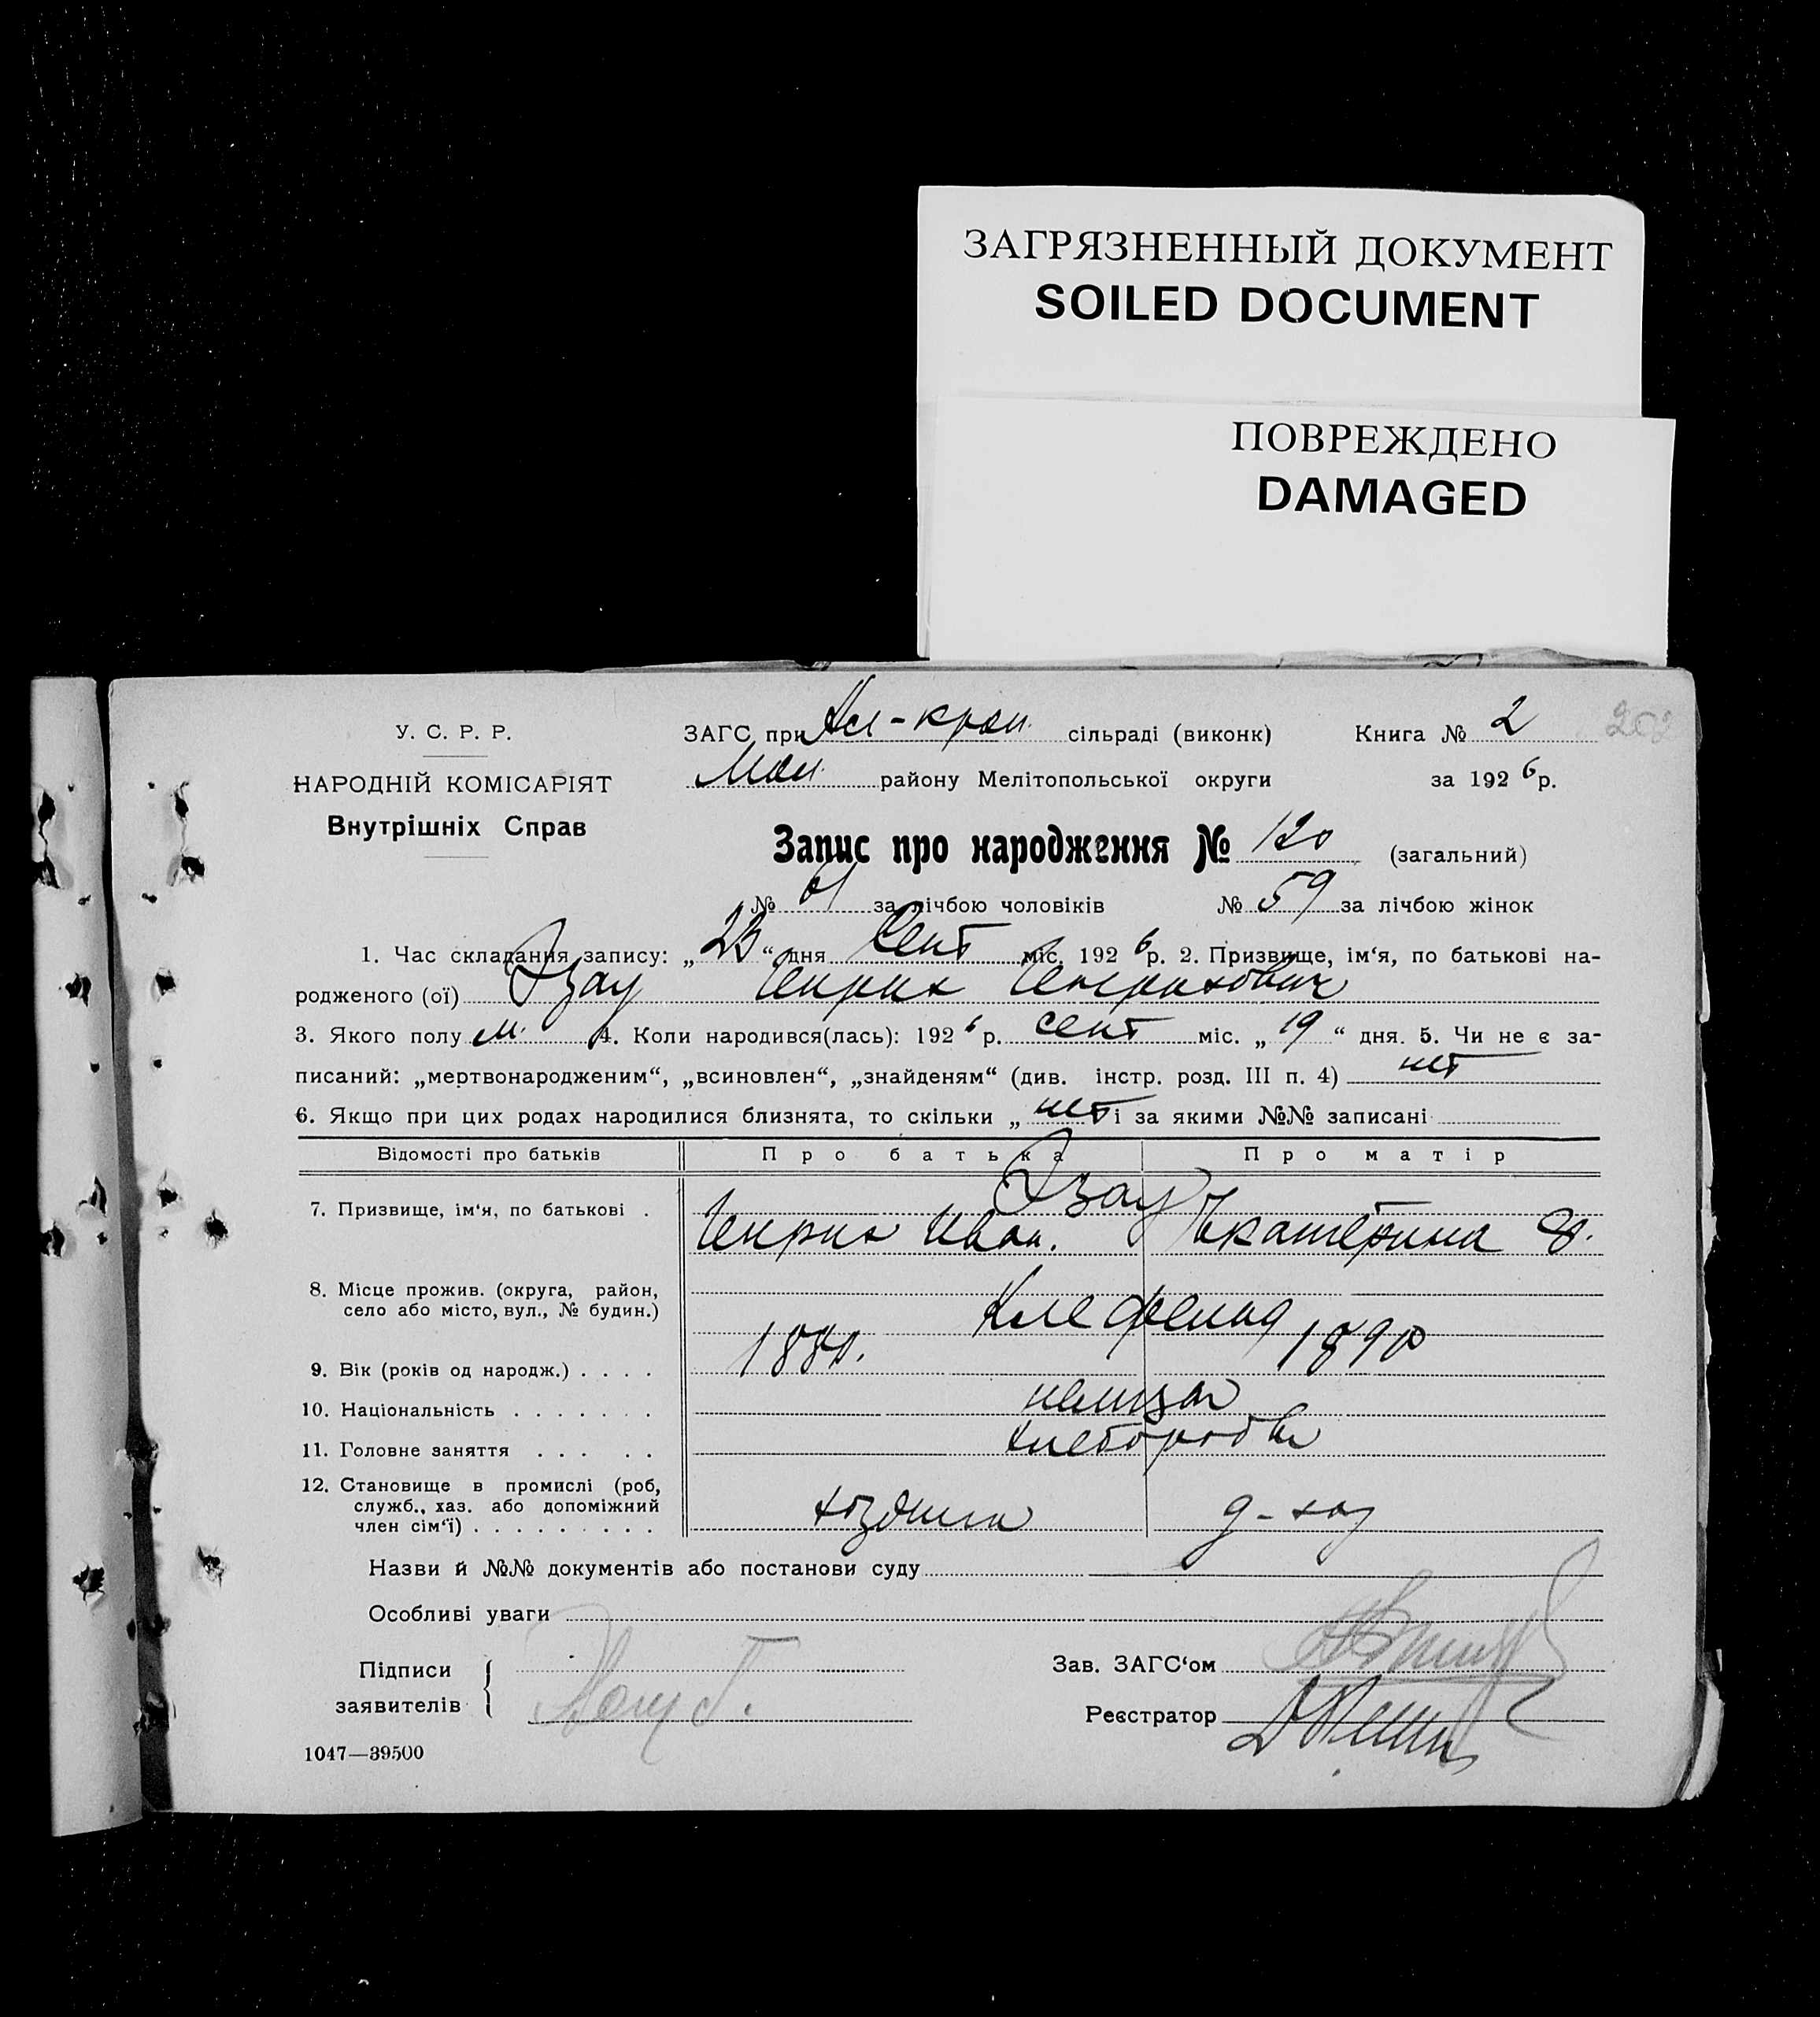 ЗАГРЯЗНЕННЫЙ ДОКУМЕНТ
SOILED DOCUMENT
ПОВРЕЖДЕНО
DAMAGED
У. С. Р. Р.
НАРОДНІЙ КОМІСАРІЯТ
Внутрішніх Справ
ЗАГС при сільраді (виконк) Книга № 2 202
Мол. району Мелітопольської округи за 1926 р.
Запис про народження № 120 (загальний)
№ 61 за лічбою чоловіків № 59 за лічбою жінок
1. Час складання запису: „23“ дня Сент міс. 1926 р. 2. Призвище, ім‘я, по батькові на-
родженого (ої) Дзау Генрих Генрихович
3. Якого полу м. 4. Коли народився(лась): 1926 р. сент міс. „19“ дня. 5. Чи не є за-
писаний: „мертвонародженим“, „всиновлен“, „знайденям“ (див. інстр. розд. III п. 4) нет
6. Якщо при цих родах народилися близнята, то скільки „нет і за якими №№ записані
Відомості про батьків Про батька Про матір
7. Призвище, ім‘я, по батькові . Дзау
Генрих Иван. Екатерина Я.
8. Місце прожив. (округа, район,
село або місто, вул., № будин.) Клефельд
9. Вік (років од народж.) . . . . 188 1890
10. Національність . . . . . . . немцы
11. Головне заняття . . . . . хлебороб
12. Становище в промислі (роб,
служб., хаз. або допоміжний
член сім‘ї) . . . . . . . . . хозяин д-хоз
Назви й №№ документів або постанови суду
Особливі уваги
Підписи
заявителів
Зав. ЗАГС‘ом
Реєстратор
1047—39500